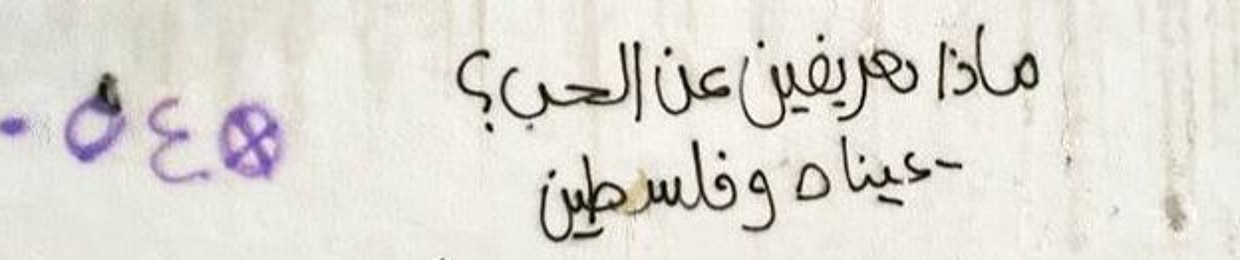 ماذا تعريفين عن الحب؟
- عيناه وفلسطين